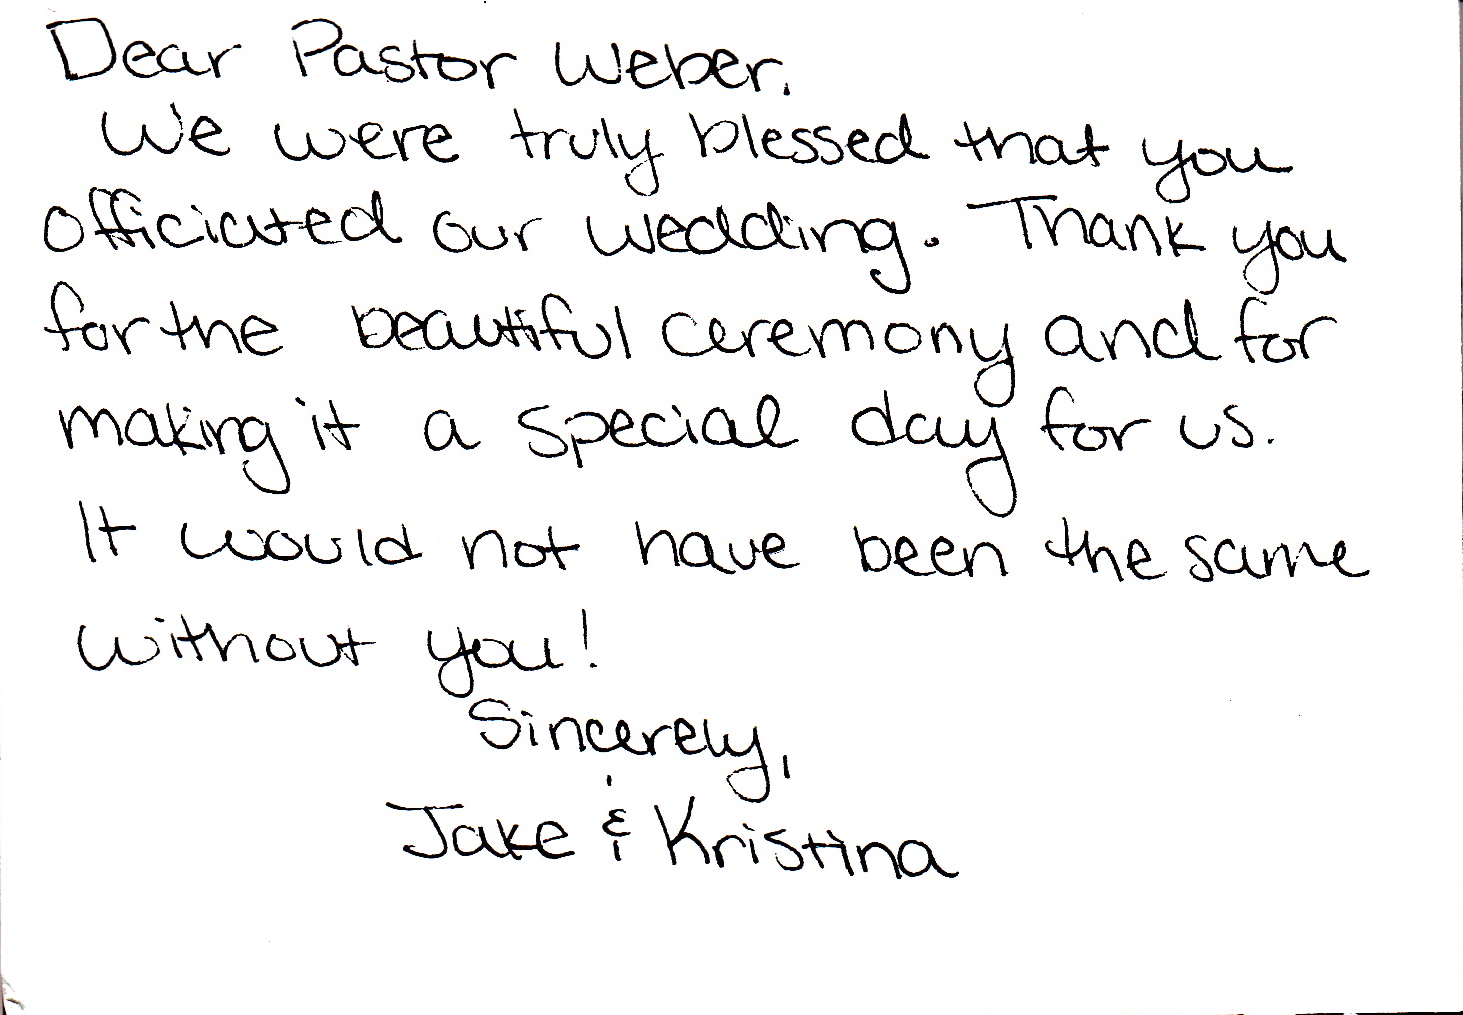 Dear Pastor Weber,
We were truly blessed that you
officiated our wedding. Thank you
for the beautiful ceremony and for
making it a special day for us.
It would not have been the same
without you!
Sincerely,
Jake & Kristina